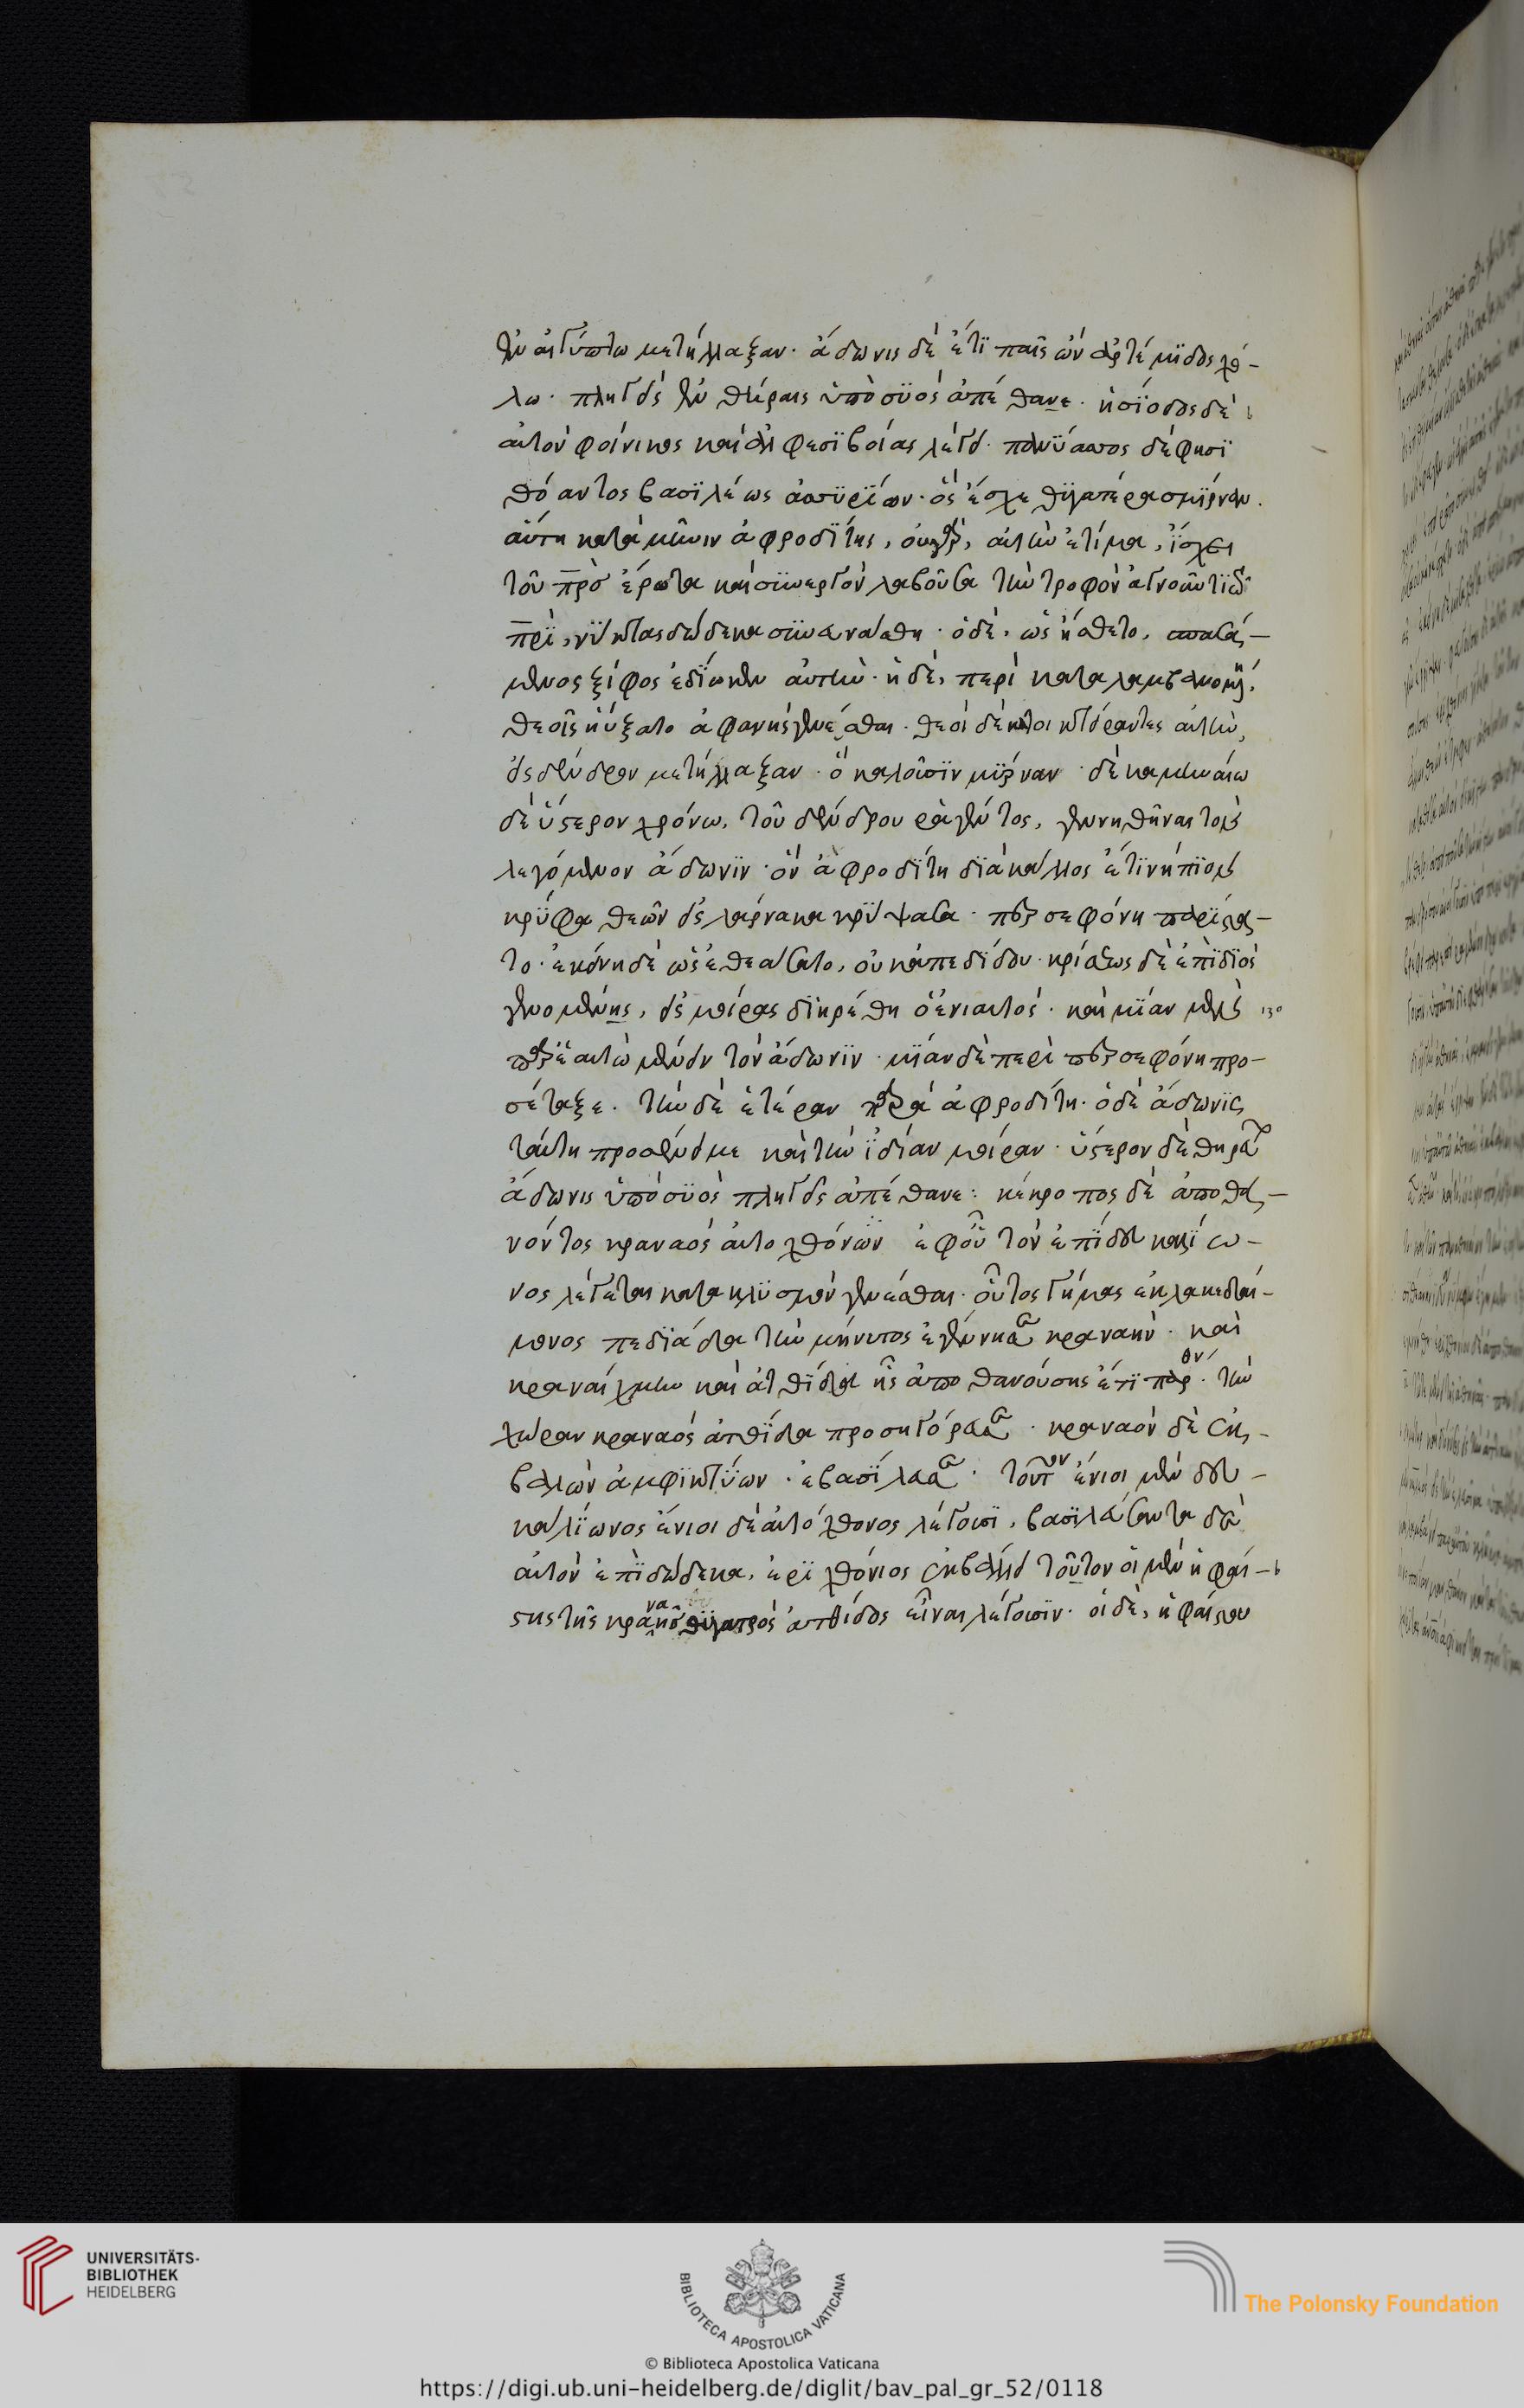 ἐν αἰγύπτω μετήλλαξαν· ἄδωνις δὲ ἔτι παῖς ὢν ἀρτέμιδος χό-
λω· πληγεὶς ἐν θήραις ὑπὸ συὸς ἀπέθανε· ἡσίοδος δὲ
αὐτὸν φοίνικος καὶ ἀλφεσιβοίας λέγει· πανύασσος δέ φησι
θόαντος βασιλέως ἀσσυρίων· ὃς ἔσχε θυγατέρα σμύρναν·
αὕτη κατὰ μῆνιν ἀφροδίτης, οὐ γὰρ, αὐτὴν ἐτίμα, ἴσχει
τοῦ πρσ ἔρωτα καὶ συνεργὸν λαβοῦσα τὴν τροφὸν ἀγνοοῦντι τῶ
πρι, νύκτας δώδεκα συνευνάσθη· ὁ δὲ, ὡς ἤσθετο, σπασά-
μενος ξίφος ἐδίωκεν αὐτήν· ἡ δὲ, περικαταλαμβανομένη,
θεοῖς ηὔξατο ἀφανὴς γενέσθαι· θεοὶ δὲ κατοικτείραντες αὐτὴν,
εἰς δένδρον μετήλλαξαν· ὃ καλοῦσιν μύρναν· δεκαμηνιαίω
δὲ ὕστερον χρόνω, τοῦ δένδρου ῥαγέντος, γεννηθῆναι τὸν
λεγόμενον ἄδωνιν· ὃν ἀφροδίτη διὰ κάλλος ἔτι νήπιον
κρύφα θεῶν εἰς λάρνακα κρύψασα· περσεφόνη παρίστα-
το· ἐκείνη δὲ ὡς ἐθεάσατο, οὐκ ἀπεδίδου· κρίσεως δὲ ἐπὶ διὸς
γενομένης, εἰς μοίρας διῃρέθη ὁ ἐνιαυτός· καὶ μίαν μὲν
παρ' ἑαυτῶ μένειν τὸν ἄδωνιν· μίαν δὲ περὶ περσεφόνη προ-
σέταξε· τὴν δὲ ἑτέραν παρὰ ἀφροδίτη· ὁ δὲ ἄδωνις
ταύτη προσένειμε καὶ τὴν ἰδίαν μοίραν· ὕστερον δὲ θηρῶν
ἄδωνις ὑπὸ συὸς πληγεὶς ἀπέθανε: κέκροπος δὲ ἀποθα-
νόντος κραναὸς αὐτόχθων ὢν ἐφ' οὗ τὸν ἐπὶ δευκαλίω-
νος λέγεται κατακλυσμὸν γενέσθαι· οὗτος γήμας ἐκ λακεδαί-
μονος πεδιάδα τὴν μήνυτος ἐγέννησε κραναήν· καὶ
κραναίχμην καὶ ἀτθίδα ἧς ἀποθανούσης ἔτι παρθν· τὴν
χώραν κραναὸς ἀτθίδα προσηγόρευσε· κραναὸν δὲ ἐκ-
βαλὼν ἀμφικτύων· ἐβασίλευσε· τοῦτον ἔνιοι μὲν δευ-
καλίωνος ἔνιοι δὲ αὐτόχθονος λέγουσι, βασιλεύσαντα δὲ
αὐτὸν ἐπὶ δώδεκα, ἐριχθόνιος ἐκβάλλει τοῦτον οἱ μὲν ἡφαί-
στης τῆς κραναοῦ θυγατρὸς ἀτθίδος εἶναι λέγουσιν· οἱ δὲ, ἡφαίστου
UNIVERSITÄTS-
BIBLIOTHEK
HEIDELBERG
BIBLIOTECA APOSTOLICA VATICANA
© Biblioteca Apostolica Vaticana
The Polonsky Foundation
https://digi.ub.uni-heidelberg.de/diglit/bav_pal_gr_52/0118